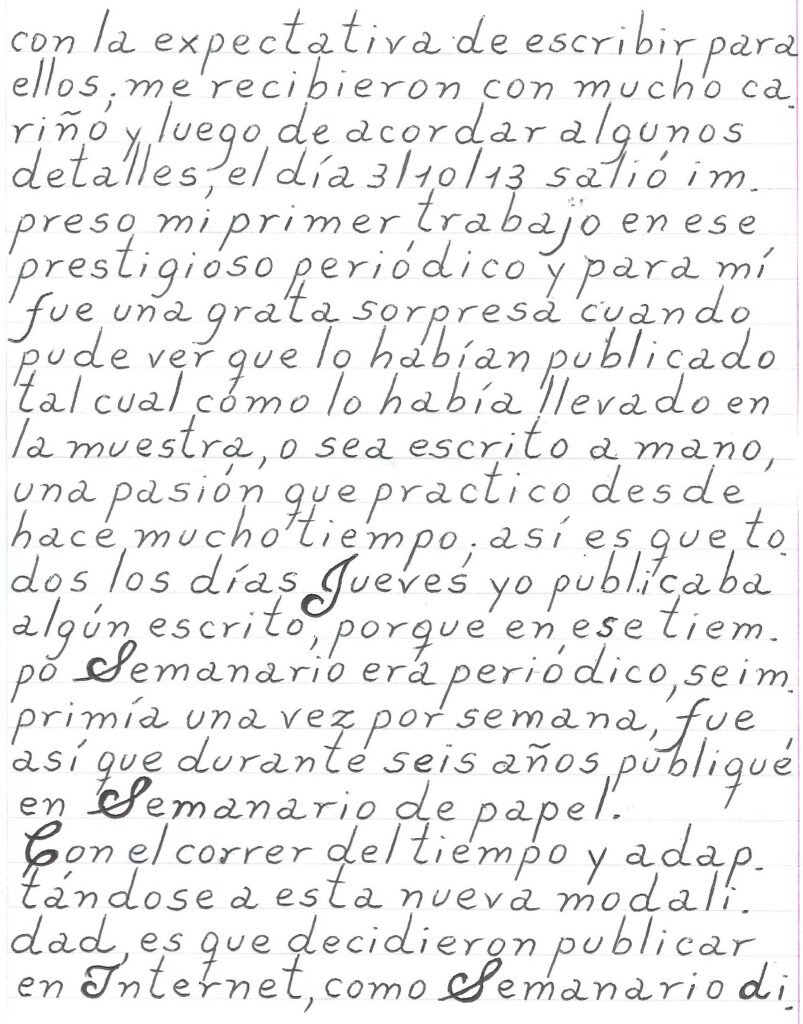 con la expectativa de escribir para
ellos; me recibieron con mucho ca.
riño y luego de acordar algunos
detalles, el día 3/10/13 salió im.
preso mi primer trabajo en ese
prestigioso periódico y para mí
fue una grata sorpresa cuando
pude ver que lo habían publicado
tal cual cómo lo había llevado en
la muestra, o sea escrito a mano,
una pasión que practico desde
hace mucho tiempo; así es que to.
dos los días Jueves yo publicaba
algún escrito, porque en ese tiem.
po Semanario era periódico, se im.
primía una vez por semana, fue
así que durante seis años publiqué
en Semanario de papel.
Con el correr del tiempo y adap.
tándose a esta nueva modali.
dad, es que decidieron publicar
en Internet, como Semanario di.